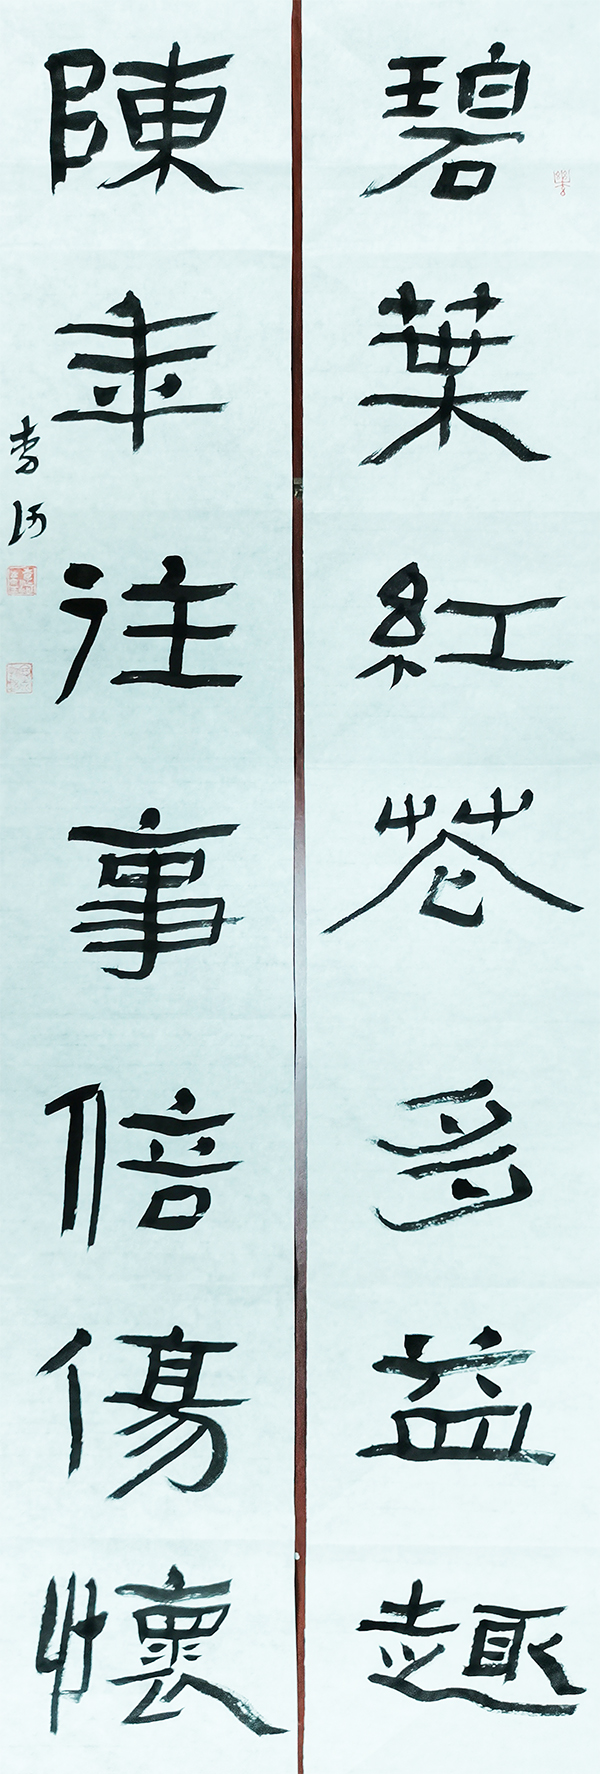 碧葉紅花多益趣
陳年往事倍傷懷
李河